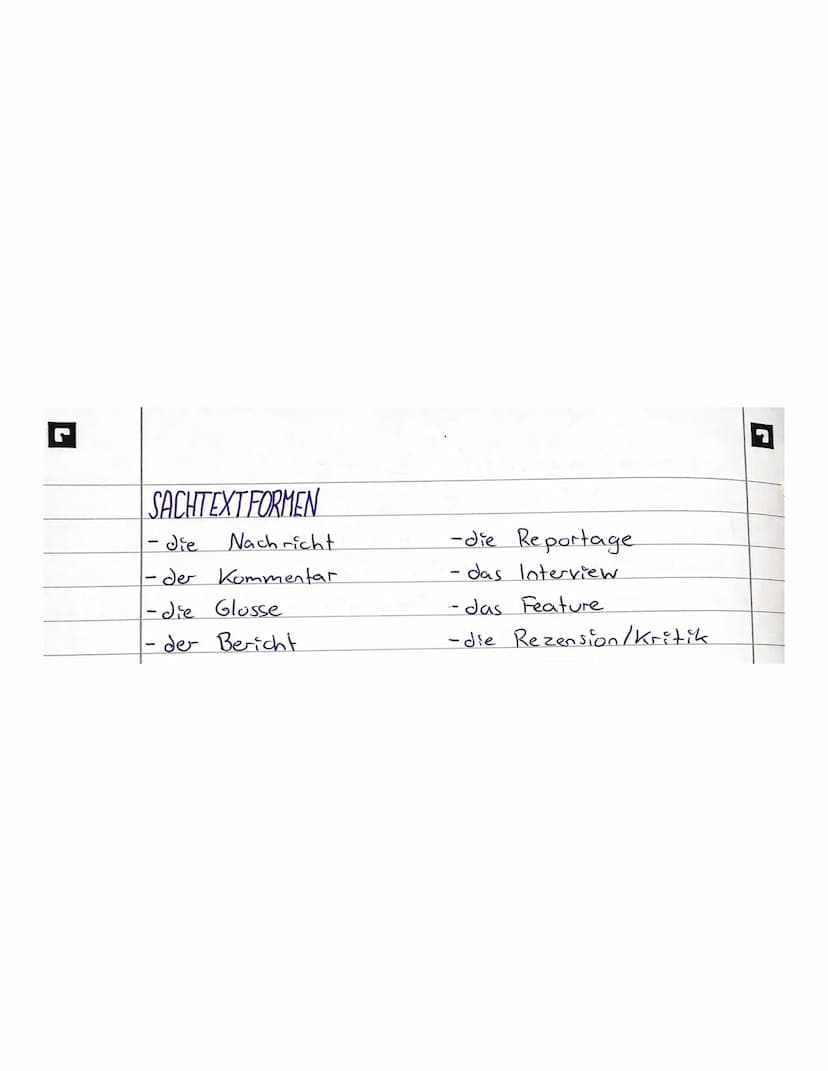 SACHTEXTFORMEN
- die Nachricht
- der Kommentar
- die Glosse
- der Bericht
- die Reportage
- das Interview
- das Feature
- die Rezension/Kritik